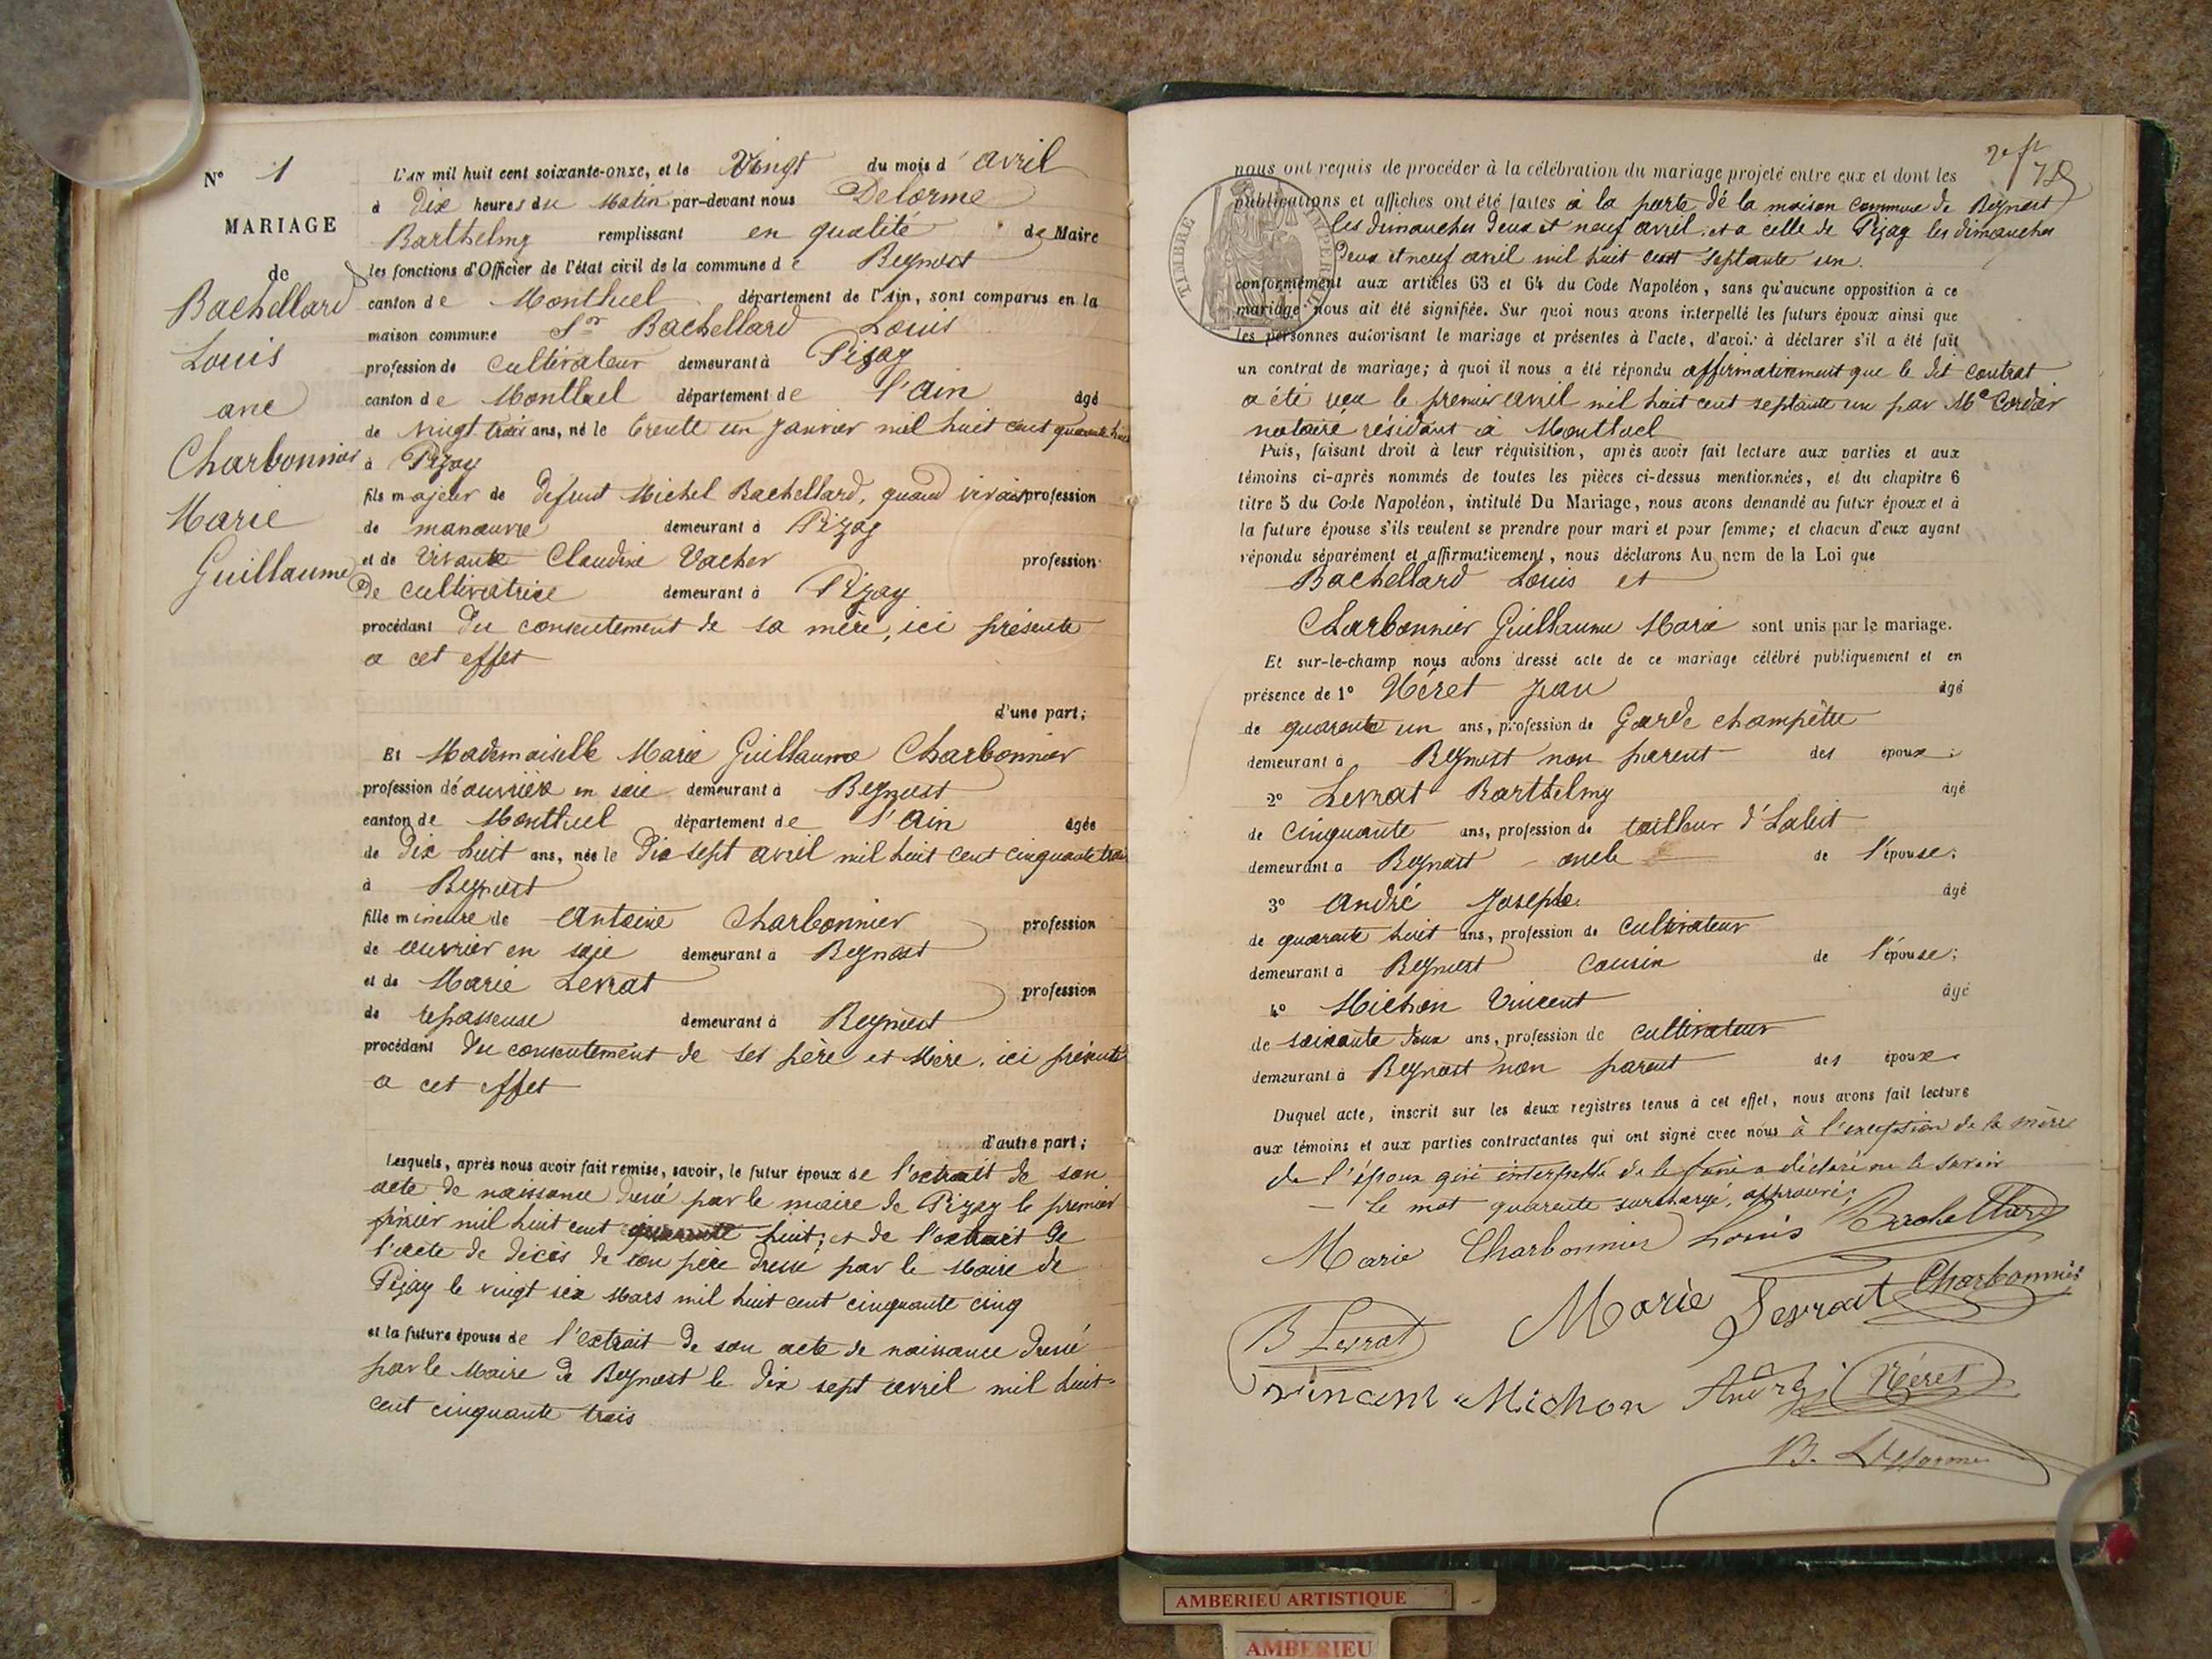 N° 1
MARIAGE
de
Bachellard
Louis
avec
Charbonnier
Marie
Guillaume
L'AN mil huit cent soixante-onze, et le Vingt du mois d'avril
à Dix heures du Matin par-devant nous Delorme
Barthelmy remplissant en qualité de Maire
les fonctions d'Officier de l'état civil de la commune de Beynost
canton de Montluel département de l'Ain, sont comparus en la
maison commune Sr Bachellard Louis
profession de cultivateur demeurant à Pizay
canton de Montluel département de l'ain âgé
de vingt trois ans, né le trente un janvier mil huit cent quarante huit
à Pizay
fils majeur de defunt Michel Bachellard, quand vivait profession
de manœuvre demeurant à Pizay
et de vivante Claudine Vacher profession
De cultivatrice demeurant à Pizay
procédant du consentement de sa mère, ici présente
a cet effet
d'une part;
Et Mademoiselle Marie Guillaume Charbonnier
profession d'ouvrière en soie demeurant à Beynost
canton de Montluel département de l'ain âgée
de dix huit ans, née le dix sept avril mil huit cent cinquante trois
à Beynost
fille mineure de Antoine Charbonnier profession
de ouvrier en soie demeurant à Beynost
et de Marie Levrat profession
de repasseuse demeurant à Beynost
procédant du consentement de ses père et mère, ici présents
a cet effet
d'autre part;
Lesquels, après nous avoir fait remise, savoir, le futur époux de l'extrait de son
acte de naissance dressé par le maire de Pizay le premier
février mil huit cent quarante huit; et de l'extrait de
l'acte de décès de son père dressé par le Maire de
Pizay le vingt six Mars mil huit cent cinquante cinq
et la future épouse de l'extrait de son acte de naissance dressé
par le Maire de Beynost le dix sept avril mil huit
cent cinquante trois
nous ont requis de procéder à la célébration du mariage projeté entre eux et dont les
publications et affiches ont été faites à la porte de la maison commune de Beynost
les dimanches deux et neuf avril, et a celle de Pizay les dimanches
deux et neuf avril mil huit cent septante un.
TIMBRE
conformément aux articles 63 et 64 du Code Napoléon, sans qu'aucune opposition à ce
mariage nous ait été signifiée. Sur quoi nous avons interpellé les futurs époux ainsi que
les personnes autorisant le mariage et présentes à l'acte, d'avoir à déclarer s'il a été fait
un contrat de mariage; à quoi il nous a été répondu affirmativement que le dit contrat
a été reçu le premier avril mil huit cent septante un par Me Cordier
notaire résidant a Montluel
Puis, faisant droit à leur réquisition, après avoir fait lecture aux parties et aux
témoins ci-après nommés de toutes les pièces ci-dessus mentionnées, et du chapitre 6
titre 5 du Code Napoléon, intitulé Du Mariage, nous avons demandé au futur époux et à
la future épouse s'ils veulent se prendre pour mari et pour femme; et chacun d'eux ayant
répondu séparément et affirmativement, nous déclarons Au nom de la Loi que
Bachellard Louis et
Charbonnier Guillaume Marie sont unis par le mariage.
Et sur-le-champ nous avons dressé acte de ce mariage célébré publiquement et en
présence de 1° Néret Jean âgé
de quarante un ans, profession de Garde champêtre
demeurant à Beynost non parent des époux;
2° Levrat Barthelmy âgé
de cinquante ans, profession de tailleur d'habit
demeurant à Beynost oncle de l'épouse;
3° André Joseph âgé
de quarante huit ans, profession de cultivateur
demeurant à Beynost cousin de l'épouse;
4° Michon Vincent âgé
de soixante deux ans, profession de cultivateur
demeurant à Beynost non parent des époux.
Duquel acte, inscrit sur les deux registres tenus à cet effet, nous avons fait lecture
aux témoins et aux parties contractantes qui ont signé avec nous à l'exception de la mère
de l'époux qui interpellé de le faire a déclaré ne le savoir
le mot quarante surchargé, approuvé;
Marie Charbonnier Louis Bachellard
B Levrat Marie Levrat Charbonnier
Vincent Michon André Néret
B. Delorme
AMBERIEU ARTISTIQUE
AMBERIEU